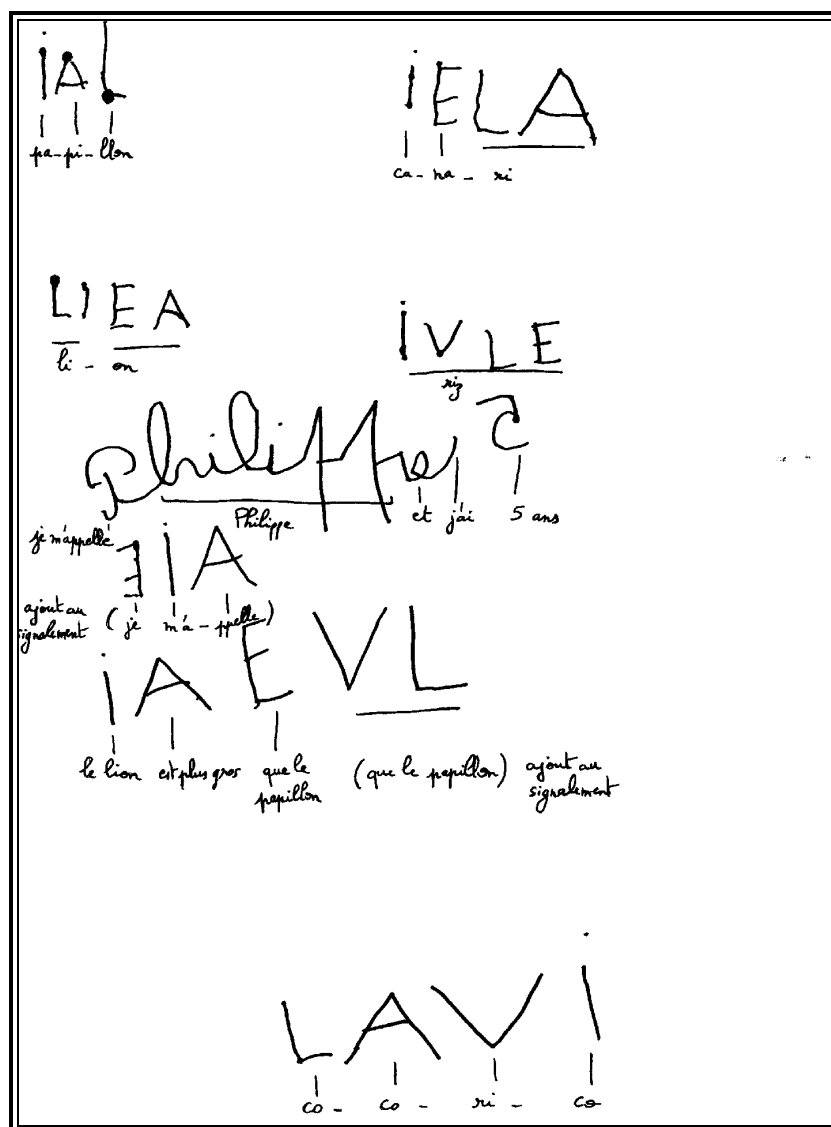 iAL
pa-pi-llon
iELA
ca-na-ri
LIEA
li-on
iVLE
riz
Philippe
je m'appelle
Philippe
et j'ai 5 ans
EiA
ajout au signalement (je m'a-ppelle)
iAEVL
le lion est plus gros que le papillon (que le papillon) ajout au signalement
LAVi
co-co-ri-co